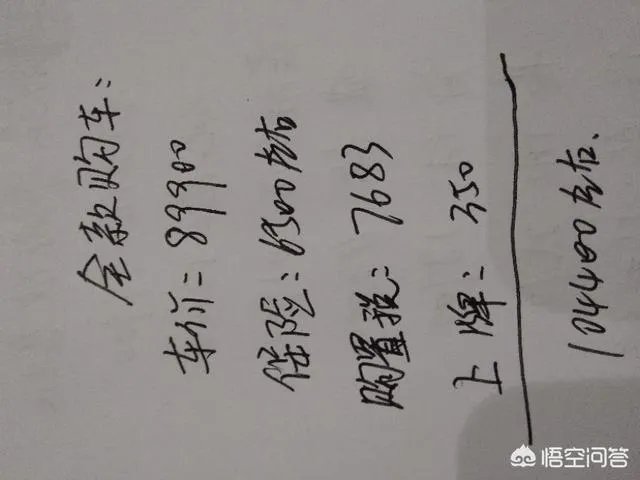 全款购车:
车价: 89900
保险: 6500左右
购置税: 7683
上牌: 350
104400左右.
悟空问答